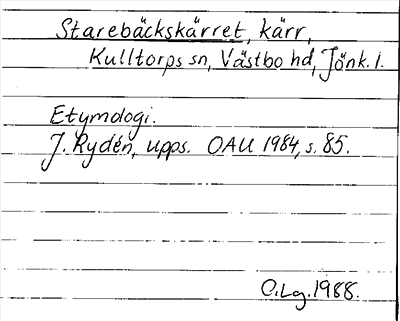 Starebäckskärret, kärr,
Kulltorps sn, Västbo hd, Jönk. l.
Etymologi.
J. Rydén, upps. OAU 1984, s. 85.
O.Lg. 1988.